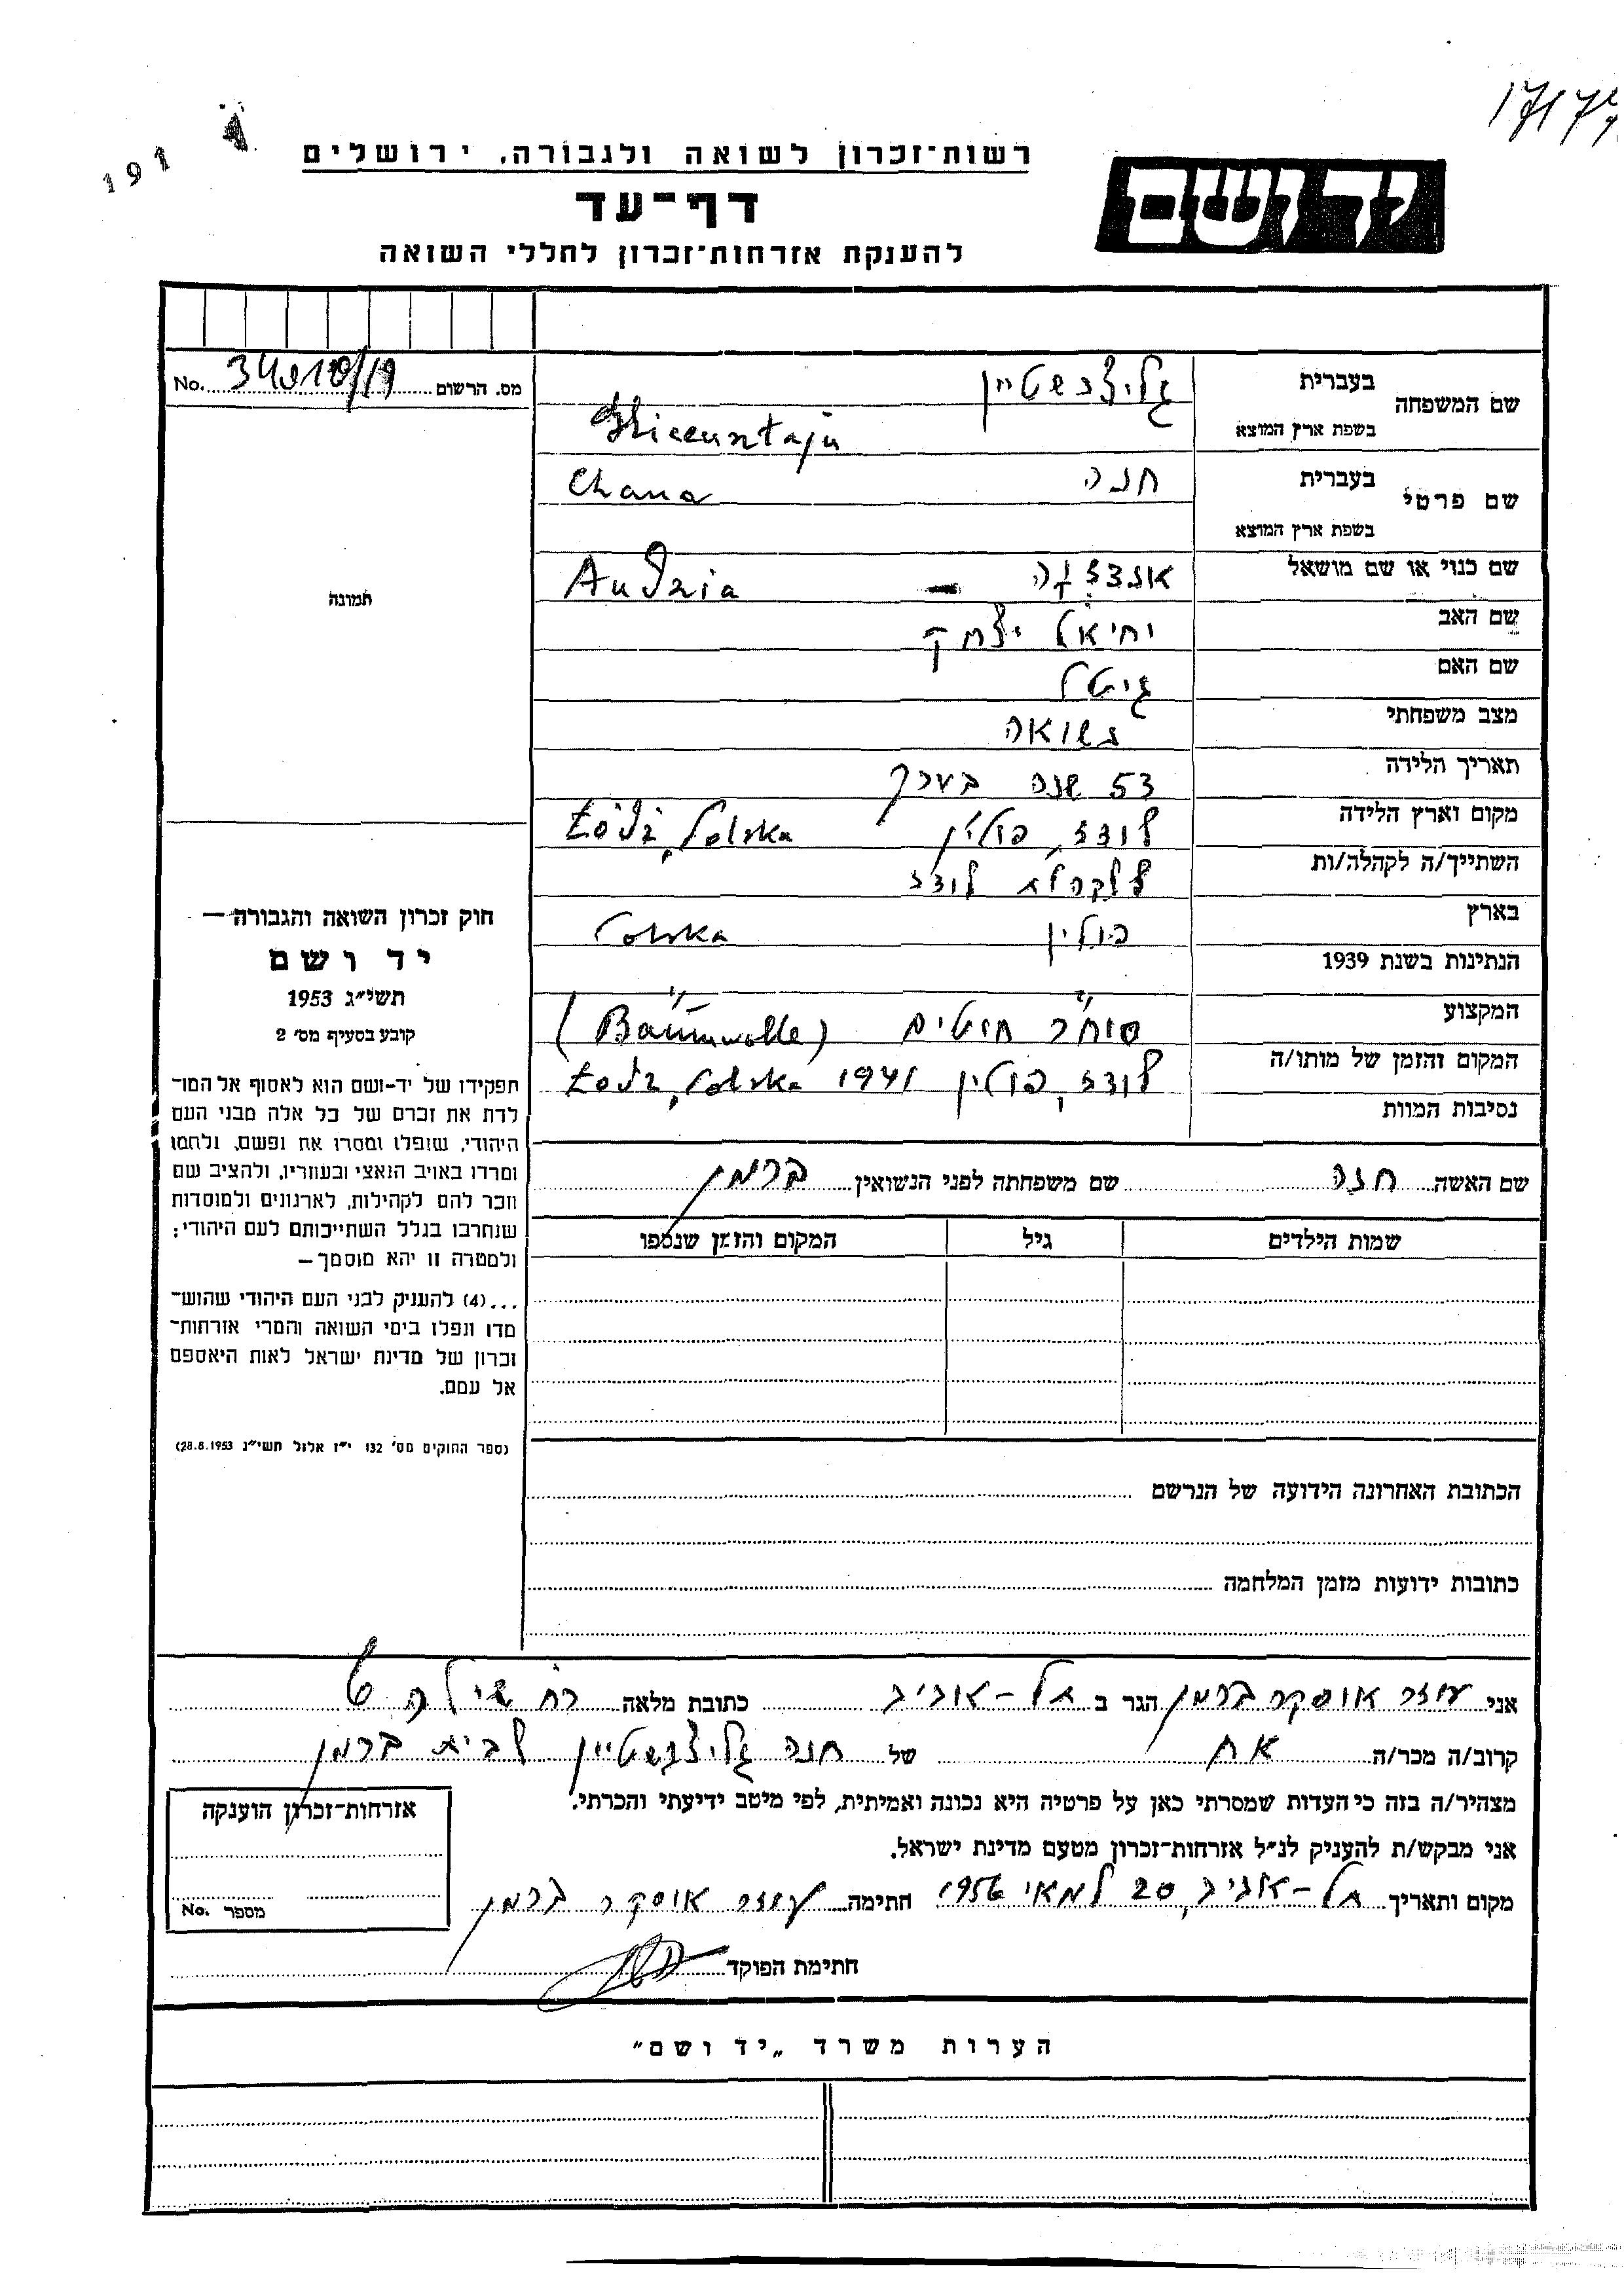 191
רשות־זכרון לשואה ולגבורה, ירושלים
דף־עד
להענקת אזרחות־זכרון לחללי השואה
יד ושם
No. מס. הרשום
שם המשפחה בעברית גליצנשטיין
בשפת ארץ המוצא
שם פרטי בעברית חנה Chana
בשפת ארץ המוצא
שם כנוי או שם מושאל אנדזזה — Andzia
שם האב יחיאל יצחק
שם האם גיטל
מצב משפחתי נשואה
תאריך הלידה 53 שנה בערך
מקום וארץ הלידה לודז, פולין Łódź, Polska
השתייך/ה לקהלה/ות לקהלת לודז
בארץ פולין Polska
הנתינות בשנת 1939
המקצוע סוחר חוטים (Baumwolle)
המקום והזמן של מותו/ה לודז, פולין Łódź, Polska 1941
נסיבות המוות
שם האשה חנה שם משפחתה לפני הנשואין ברמן
שמות הילדים גיל המקום והזמן שנספו
הכתובת האחרונה הידועה של הנרשם
כתובות ידועות מזמן המלחמה
תמונה
חוק זכרון השואה והגבורה —
יד ושם
תשי״ג 1953
קובע בסעיף מס׳ 2
תפקידו של יד-ושם הוא לאסוף אל המו־
לדת את זכרם של כל אלה מבני העם
היהודי, שנפלו ומסרו את נפשם, נלחמו
ומרדו באויב הנאצי ובעוזריו, ולהציב שם
וזכר להם לקהילות, לארגונים ולמוסדות
שנחרבו בגלל השתייכותם לעם היהודי;
ולמטרה זו יהא מוסמך—
...(4) להעניק לבני העם היהודי שהוש־
מדו ונפלו בימי השואה והמרי אזרחות־
זכרון של מדינת ישראל לאות היאספם
אל עמם.
(ספר החוקים מס׳ 132 י״ז אלול תשי״ג 28.8.1953)
אני עוזר אוסקר ברמן הגר ב תל-אביב כתובת מלאה רח שילה 6
קרוב/ה מכר/ה אח של חנה גליצנשטיין לבית ברמן
מצהיר/ה בזה כי העדות שמסרתי כאן על פרטיה היא נכונה ואמיתית, לפי מיטב ידיעתי והכרתי.
אני מבקש/ת להעניק לנ״ל אזרחות־זכרון מטעם מדינת ישראל.
מקום ותאריך תל-אביב, 20 למאי 1956 חתימה עוזר אוסקר ברמן
חתימת הפוקד
אזרחות־זכרון הוענקה
מספר No.
הערות משרד „יד ושם״